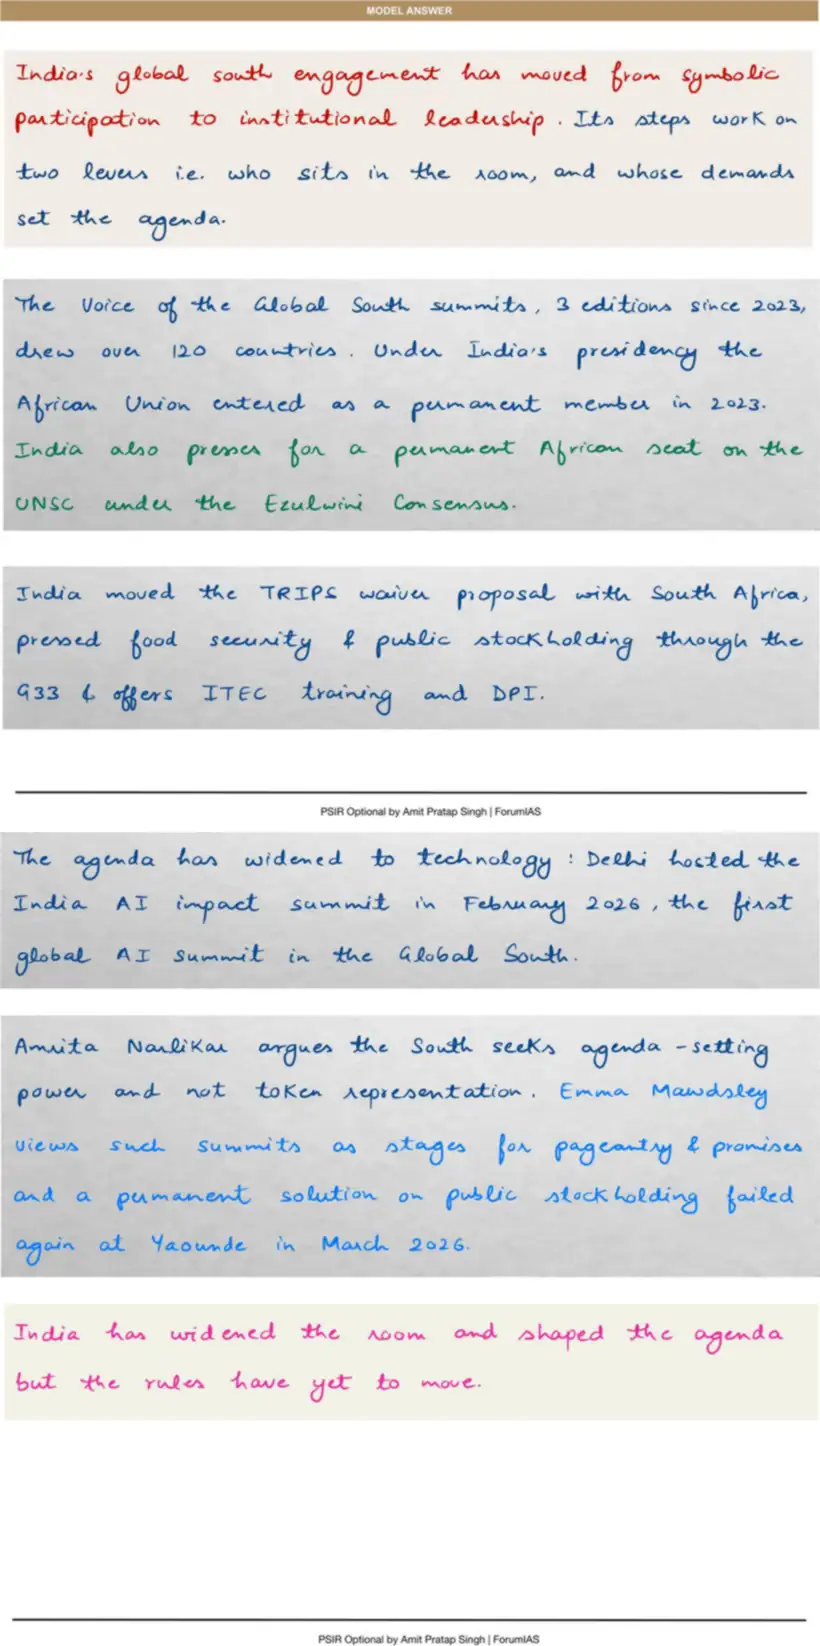 MODEL ANSWER
India's global south engagement has moved from symbolic
participation to institutional leadership. Its steps work on
two levers i.e. who sits in the room, and whose demands
set the agenda.
The Voice of the Global South summits, 3 editions since 2023,
drew over 120 countries. Under India's presidency the
African Union entered as a permanent member in 2023.
India also presses for a permanent African seat on the
UNSC under the Ezulwini Consensus.
India moved the TRIPS waiver proposal with South Africa,
pressed food security & public stockholding through the
G33 & offers ITEC training and DPI.
PSIR Optional by Amit Pratap Singh | ForumIAS
The agenda has widened to technology : Delhi hosted the
India AI impact summit in February 2026, the first
global AI summit in the Global South.
Amrita Narlikar argues the South seeks agenda-setting
power and not token representation. Emma Mawdsley
views such summits as stages for pageantry & promises
and a permanent solution on public stockholding failed
again at Yaounde in March 2026.
India has widened the room and shaped the agenda
but the rules have yet to move.
PSIR Optional by Amit Pratap Singh | ForumIAS